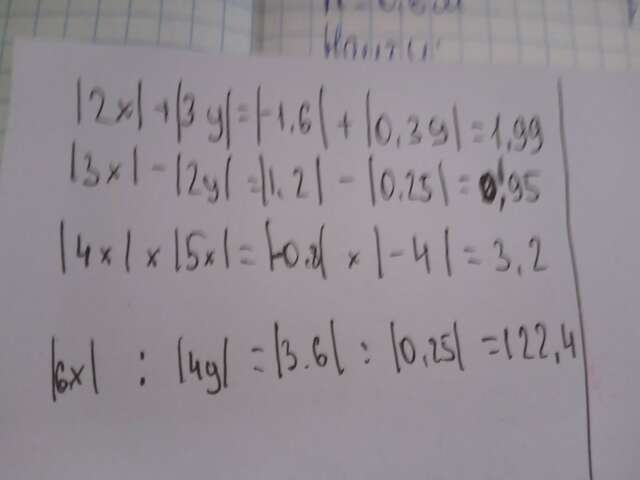 |2x| + |3y| = |-1.6| + |0,39| = 1,99
|3x| - |2y| = |1.2| - |0.25| = 0,95
|4x| × |5x| = |-0.8| × |-4| = 3,2
|6x| : |4y| = |3.6| : |0,25| = 122,4